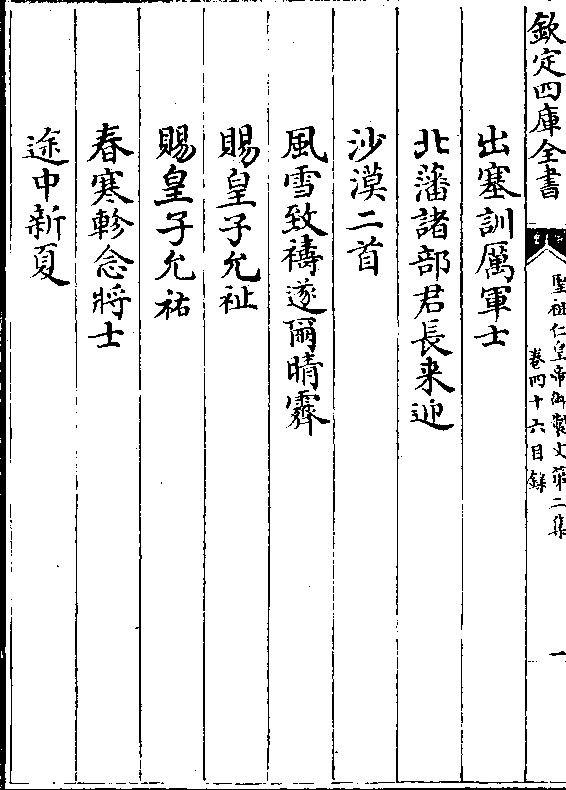 欽定四庫全書
聖祖仁皇帝御製文第二集
卷四十六目錄
一
出塞訓厲軍士
北藩諸部君長来迎
沙漠二首
風雪致禱遂爾晴霽
賜皇子允祉
賜皇子允祐
春寒軫念將士
途中新夏